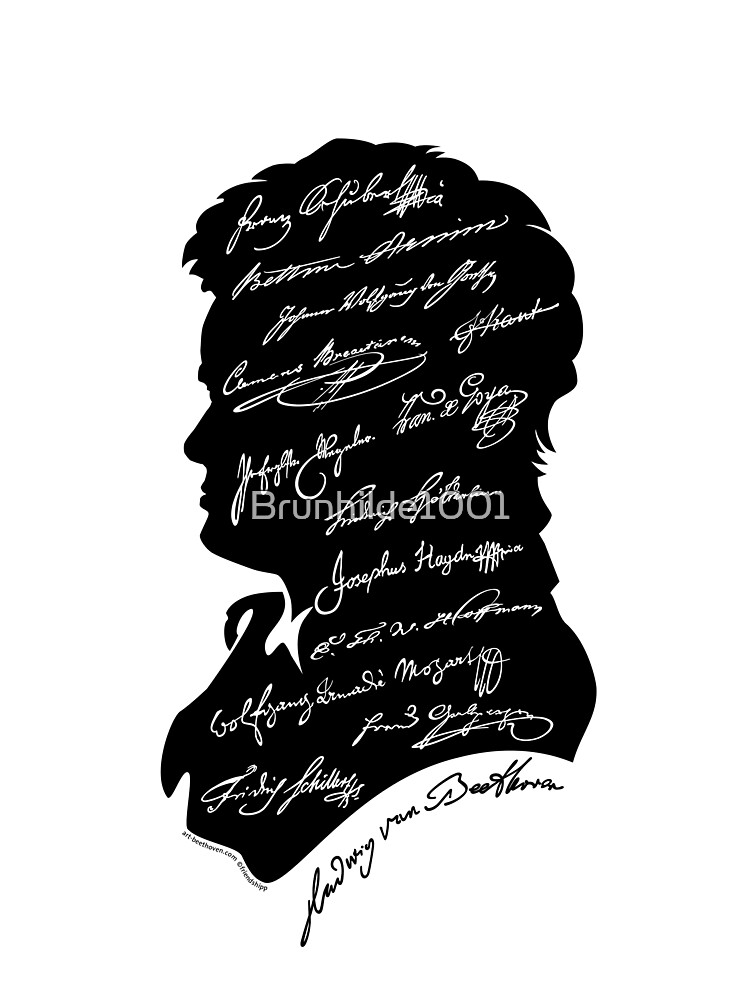 Franz Schubert
Bettine Arnim
Johann Wolfgang von Goethe
I Kant
Clemens Brentano
Fran. de Goya
Wegeler.
Brunhilde1001
Hölderlin
Josephus Haydn
E. T. W. Hoffmann
Wolfgang Amadè Mozart
Franz
Fridrich Schiller
Ludwig van Beethoven
art-beethoven.com ©friendshipp